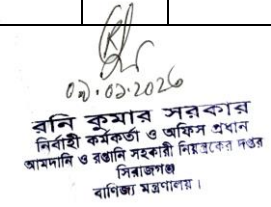 ০১.০১.2026
রনি কুমার সরকার
নির্বাহী কর্মকর্তা ও অফিস প্রধান
আমদানি ও রপ্তানি সহকারী নিয়ন্ত্রকের দপ্তর
সিরাজগঞ্জ
বাণিজ্য মন্ত্রণালয়।